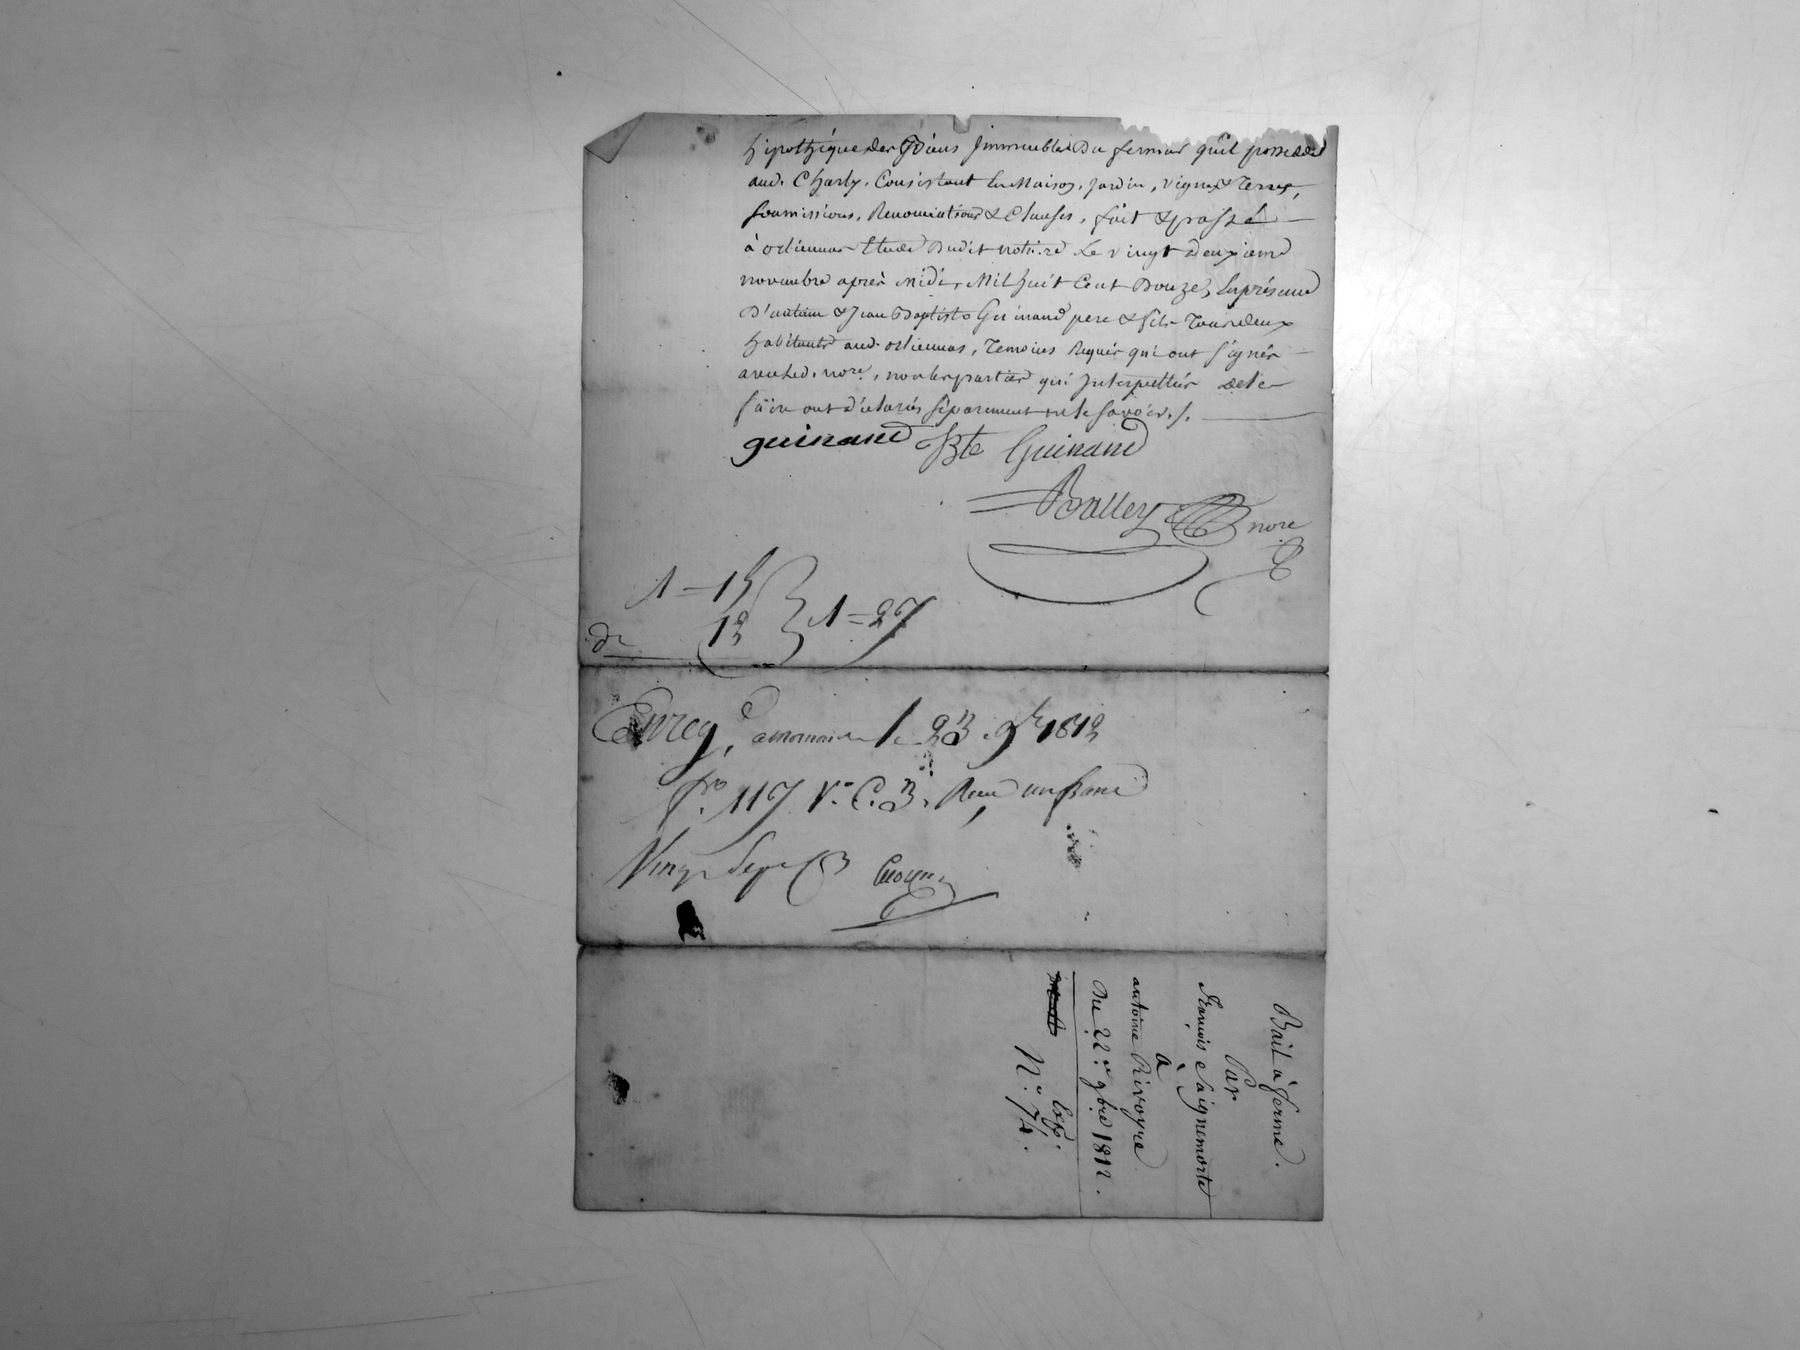 hipothéque des Biens Immeubles Du fermier qu'il possede
aud. Charly, Consistant En Maison, jardin, vignes & Terres,
soumissions, Renonciations & Clauses, fait & passé
à orliennas Etude Dudit notre. Le vingt Deuxieme
novembre après midi, Mil huit Cent Douze, En présence
D'antoine & Jean Baptiste Guinand pere & fils Tous deux
habitants aud. orliennas, Temoins Requis qui ont signés
avec Led. nore, non les parties qui Interpellés de le
faire ont déclarés séparement ne le savoir ./.
guinand JBte Guinand
Balley nore
1 = 15
12
1 = 27
de
Enreg. é a mornan le 23 9bre 1812
fo. 117 Vo. C. 3. Reçu un franc
Vingt Sept
Bail à ferme.
Par
François Saignemorte
à
antoine Rivoyre
Du 22e. 9bre 1812.
Exp.
No. 74.